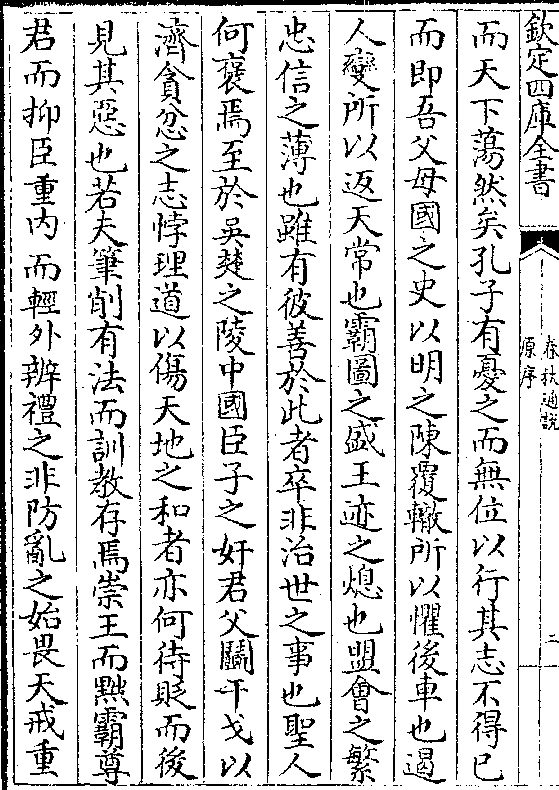 欽定四庫全書
春秋通說
原序
二
而天下蕩然矣孔子有憂之而無位以行其志不得已
而即吾父母國之史以明之陳覆轍所以懼後車也遏
人變所以返天常也霸圖之盛王迹之熄也盟會之繁
忠信之薄也雖有彼善於此者卒非治世之事也聖人
何襃焉至於吳楚之陵中國臣子之奸君父鬭干戈以
濟貪忿之志悖理道以傷天地之和者亦何待貶而後
見其惡也若夫筆削有法而訓教存焉崇王而黜霸尊
君而抑臣重内而輕外辨禮之非防亂之始畏天戒重